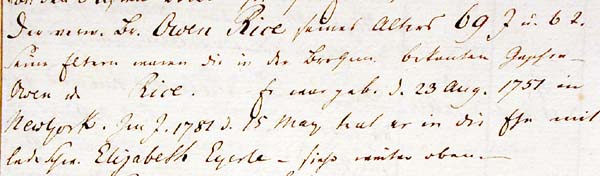 Der verw. Br. Owen Rice seines Alters 69 J. u. 6 T.
Seine Eltern waren die in der Brgem. bekanten Geschw.
Owen u. Rice. Er war geb. d. 23 Aug. 1751 in
Newyork. Im J. 1781 d. 15 May trat er in die Ehe mit
led. Schw. Elizabeth Eyerle – siehe weiter oben. –